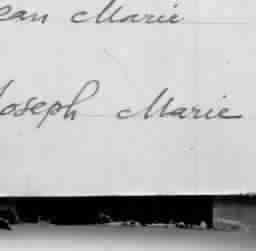 ean Marie
Joseph Marie